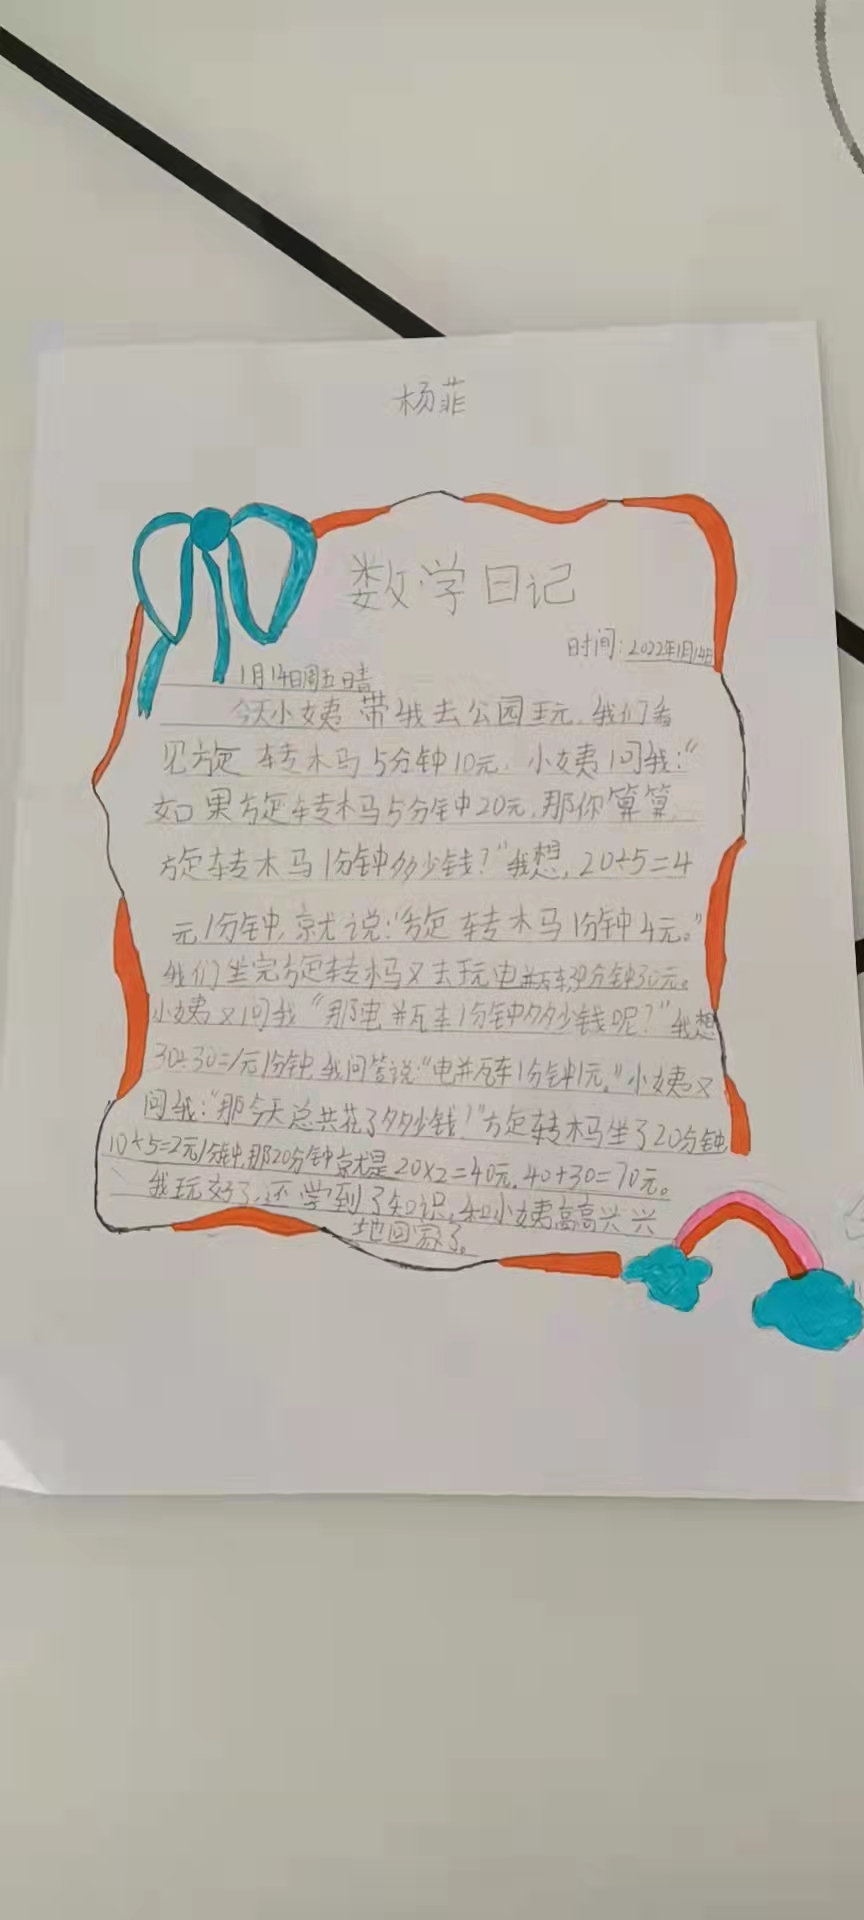 杨菲
数学日记
时间:2022年1月14日
1月14日周五晴
今天小姨带我去公园玩,我们看
见旋转木马5分钟10元,小姨问我:“
如果旋转木马5分钟20元,那你算算
旋转木马1分钟多少钱?”我想,20÷5=4
元1分钟,就说:“旋转木马1分钟4元。”
我们坐完旋转木马又去玩电瓶车30分钟30元。
小姨又问我“那电瓶车1分钟多少钱呢?”我想
30÷30=1元1分钟,我回答说“电瓶车1分钟1元。”小姨又
问我:“那今天总共花了多少钱!”旋转木马坐了20分钟
10÷5=2元1分钟,那20分钟就是20×2=40元.40+30=70元。
我玩好了,还学到了知识,和小姨高高兴兴
地回家了。